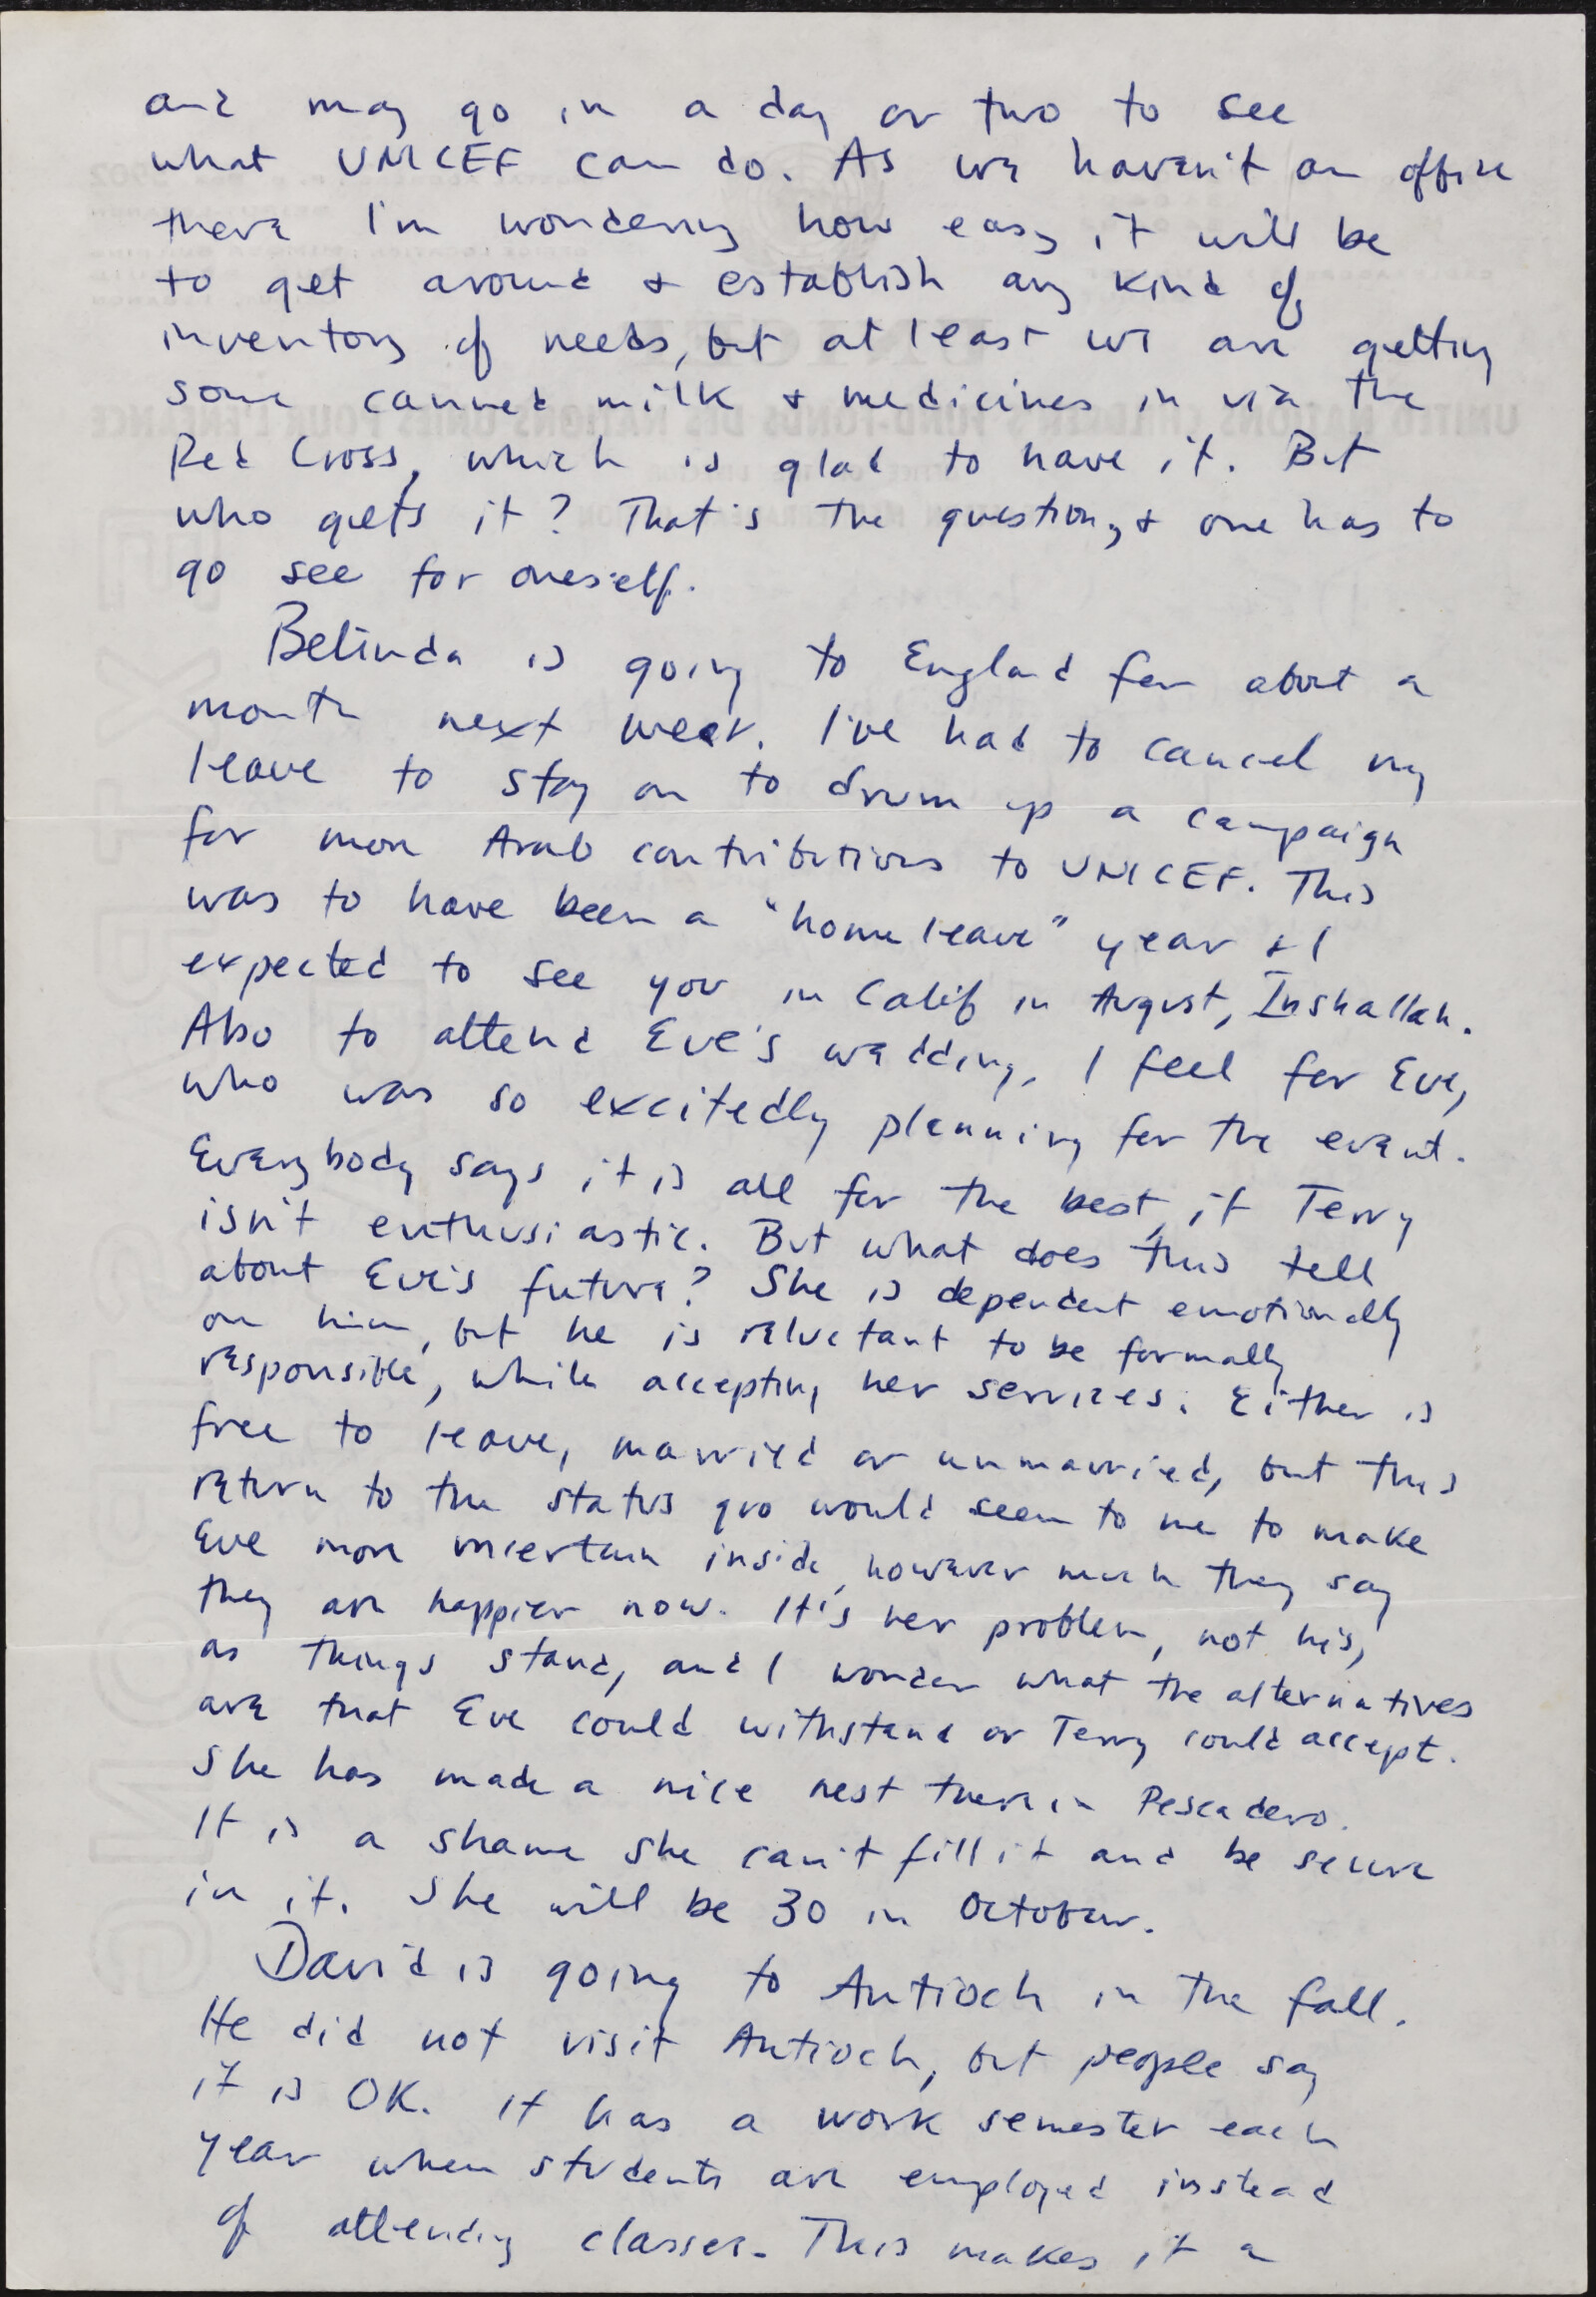 and may go in a day or two to see
what UNICEF can do. As we haven't an office
there I'm wondering how easy it will be
to get around & establish any kind of
inventory of needs, but at least we are getting
some canned milk & medicines in via the
Red Cross, which is glad to have it. But
who gets it? That's the question, & one has to
go see for oneself.
Belinda is going to England for about a
month next week. I've had to cancel my
leave to stay on to drum up a campaign
for more Arab contributions to UNICEF. This
was to have been a "home leave" year & I
expected to see you in Calif in August, Inshallah.
Also to attend Eve's wedding. I feel for Eve,
who was so excitedly planning for the event.
Everybody says it is all for the best, if Terry
isn't enthusiastic. But what does this tell
about Eve's future? She is dependent emotionally
on him, but he is reluctant to be formally
responsible, while accepting her services. Either is
free to leave, married or unmarried, but this
return to the status quo would seem to me to make
Eve more uncertain inside, however much they say
they are happier now. It's her problem, not his,
as things stand, and I wonder what the alternatives
are that Eve could withstand or Terry could accept.
She has made a nice nest there in Pescadero.
It is a shame she can't fill it and be secure
in it. She will be 30 in October.
David is going to Antioch in the fall.
He did not visit Antioch, but people say
it is OK. It has a work semester each
year when students are employed instead
of attending classes. This makes it a